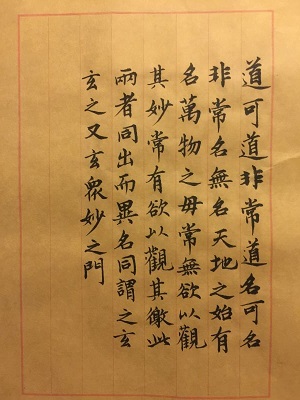 道可道非常道名可名
非常名無名天地之始有
名萬物之母常無欲以觀
其妙常有欲以觀其徼此
兩者同出而異名同謂之玄
玄之又玄眾妙之門